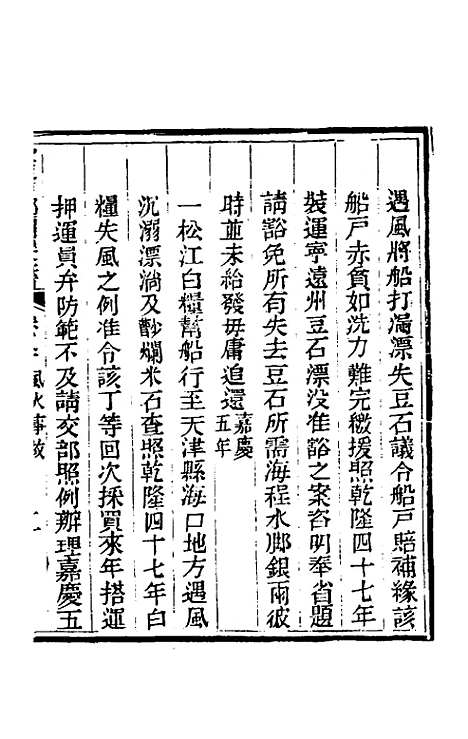 遇風將船打濶漂失豆石議令船戸賠補緣該
船戸赤貧如洗力難完繳援照乾隆四十七年
裝運寧遠州豆石漂没准豁之案咨明奉省題
請豁免所有失去豆石所需海程水脚銀兩彼
時並未給發毋庸追還嘉慶五年
一松江白糧幫船行至天津縣海口地方遇風
沉溺漂淌及黴爛米石查照乾隆四十七年白
糧失風之例准令該丁等回次採買來年搭運
押運員弁防範不及請交部照例辦理嘉慶五
風火事故